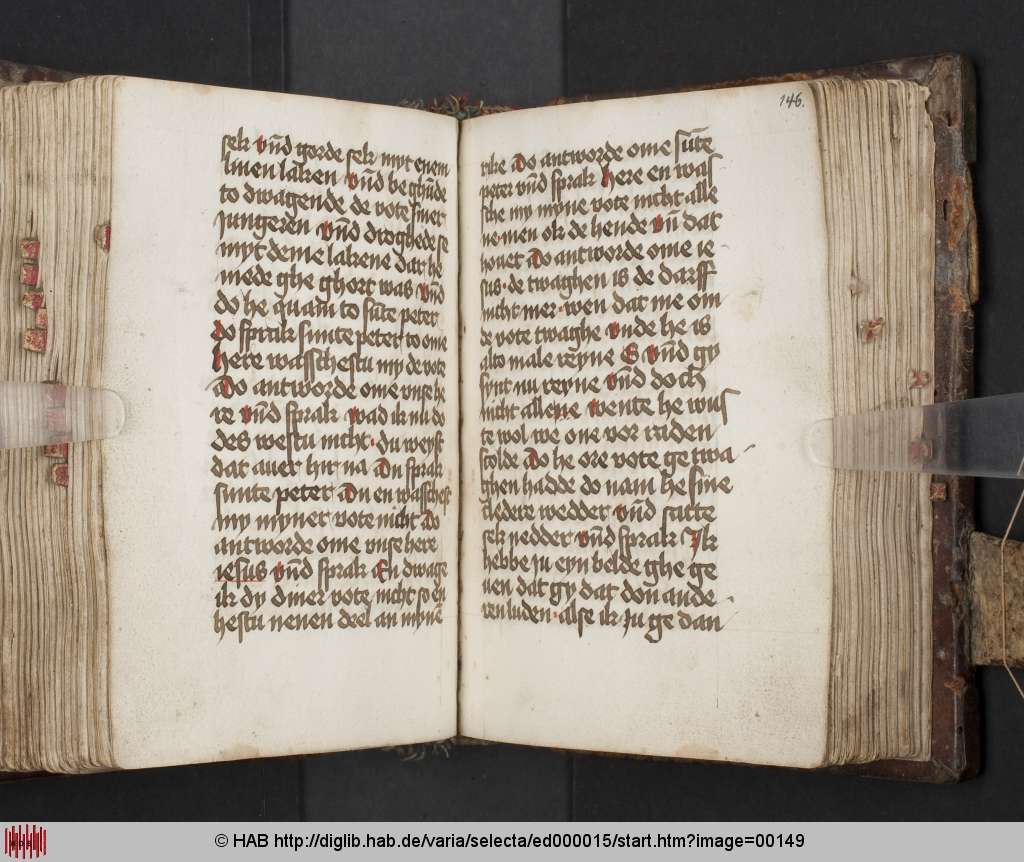 sek vnd gorde sek myt enem
linen laken vnd beghunde
to dwagende de vote siner
jungeren vnd droghede se
myt deme lakene dat he
mede ghe ghort was vnd
do he quam to sūte peter
do sprak sunte peter to ome
here wasschestu my de vote
Do antworde ome vnse he
re vnd sprak wad ik nu do
des westu nicht · du weyst
dat auer hir na Du sprak
sunte peter Du en wasschest
my myner vote nicht Do
antworde ome vnse here
iesus vnd sprak En dwage
ik dy diner vote nicht so en
hestu nenen deel an mynē
146.
rike Do antworde ome sūte
peter vnd sprak here en was
sche my myne vote nicht alle
ne · men ok de hende vn̄ dat
houet Do antworde ome ie
sus · de twaghen is de darff
nicht mer · wen dat me om
de vote twaghe vnde he is
alto male reyne Es vnd gy
synt nu reyne vnd doch
nicht allene wente he wus
te wol we one vor raden
scolde Do he ore vote ge twa
ghen hadde do nam he sine
cledere wedder vnd satte
sek nedder vnd sprak Ik
hebbe ju eyn belde ghe ge
uen dat gy dat don ande
ren luden · alse ik ju ge dan
© HAB http://diglib.hab.de/varia/selecta/ed000015/start.htm?image=00149